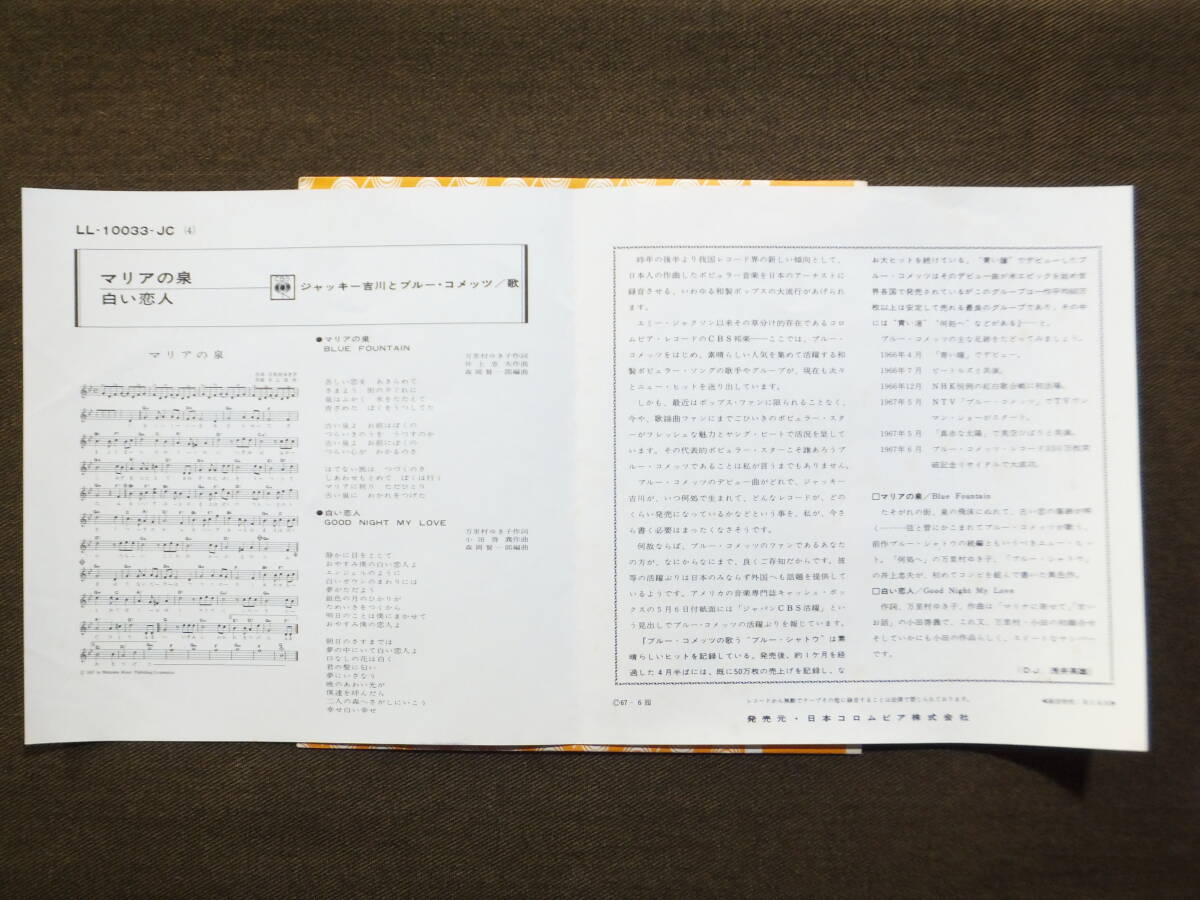 LL-10033-JC (4)
マリアの泉
白い恋人
CBS
ジャッキー吉川とブルー・コメッツ／歌
マリアの泉
●マリアの泉
BLUE FOUNTAIN
万里村ゆき子作詞
井上忠夫作曲
森岡賢一郎編曲
苦しい恋を あきらめて
さまよう 街の夕ぐれに
泉はふかく 水をたたえて
青ざめた ぼくをうつしてた
古い泉よ お前はぼくの
つらいきのうを うつすのか
古い泉よ お前にぼくの
つらい心が わかるのさ
はてない旅は つづくのさ
しあわせもとめて ぼくは行う
マリアに祈り ただひとり
古い泉に わかれをつげた
●白い恋人
GOOD NIGHT MY LOVE
万里村ゆき子作詞
小田啓義作曲
森岡賢一郎編曲
静かに目をとじて
おやすみ僕の白い恋人よ
エンジェルのように
白いガウンのまわりには
夢がただよう
銀色の月のひかりが
ためいきをつくから
明日のことは僕にまかせて
おやすみ僕の恋人よ
朝日のさすまでは
夢の中にいて白い恋人よ
くちなしの花は白く
君の髪に匂い
夢にいざなう
暁のあわい光が
僕達を呼んだら
二人の森へさがしにいこう
幸せ白い幸せ
昨年の後半より我国レコード界の新しい傾向として、
日本人の作曲したポピュラー音楽を日本のアーチストに
録音させる、いわゆる和製ポップスの大流行があげられ
ます。
エミー・ジャクソン以来その草分け的存在であるコロ
ムビア・レコードのCBS邦楽——ここでは、ブルー・
コメッツをはじめ、素晴らしい人気を集めて活躍する和
製ポピュラー・ソングの歌手やグループが、現在も次々
とニュー・ヒットを送り出しています。
しかも、最近はポップス・ファンに限られることなく、
今や、歌謡曲ファンにまでごひいきのポピュラー・スタ
ーがフレッシュな魅力とヤング・ビートで活況を呈して
います。その代表的ポピュラー・スターこそ誰あろうブ
ルー・コメッツであることは私が言うまでもありません。
ブルー・コメッツのデビュー曲がどれで、ジャッキー
吉川が、いつ何処で生まれて、どんなレコードが、どの
くらい発売になっているかなどという事を、私が、今さ
ら書く必要はまったくなさそうです。
何故ならば、ブルー・コメッツのファンであるあなた
の方が、なにからなにまで、良くご存知だからです。彼
等の活躍ぶりは日本のみならず外国へも話題を提供して
いるようです。アメリカの音楽専門誌キャッシュ・ボッ
クスの5月6日付紙面には「ジャパンCBS活躍」とい
う見出しでブルー・コメッツの活躍ぶりを報じています。
『ブルー・コメッツの歌う“ブルー・シャトウ”は素
晴らしいヒットを記録している。発売後、約1ケ月を経
過した4月半ばには、既に50万枚の売上げを記録し、な
お大ヒットを続けている。“青い瞳”でデビューしたブ
ルー・コメッツはそのデビュー曲が米エピックを始め世
界各国で発売されているがこのグループは一作平均
枚以上は安定して売れる最良のグループであり、その中
には“青い渚”“何処へ”などがある』——と。
ブルー・コメッツの主な足跡をたどってみましょう。
1966年4月 「青い瞳」でデビュー。
1966年7月 ビートルズと共演。
1966年12月 NHK恒例の紅白歌合戦に初出場。
1967年5月 NTV「ブルー・コメッツ」でTVワン
マン・ショーがスタート。
1967年5月 「真赤な太陽」で美空ひばりと共演。
1967年6月 ブルー・コメッツ・レコード
破記念リサイタルで大成功。
□マリアの泉／Blue Fountain
たそがれの街、泉の飛沫にぬれて、古い恋の
く——弦と管にかこまれてブルー・コメッツが歌う、
前作ブルー・シャトウの続編ともいうべきニュー・ヒッ
ト。「何処へ」の万里村ゆき子、「ブルー・シャトウ」
の井上忠夫が、初めてコンビを組んで書いた異色作。
□白い恋人／Good Night My Love
作詞、万里村ゆき子、作曲は「マリアナに寄せて」「甘い
お話」の小田啓義で、この又、万里村・小田の初顔合せ
そしていかにも小田の作品らしく、スイートなナンバー
です。
(D.J. 浅井英雄)
Ⓒ67-6
レコードから無断でテープその他に録音することは法律で禁じられております。
発売元・日本コロムビア株式会社